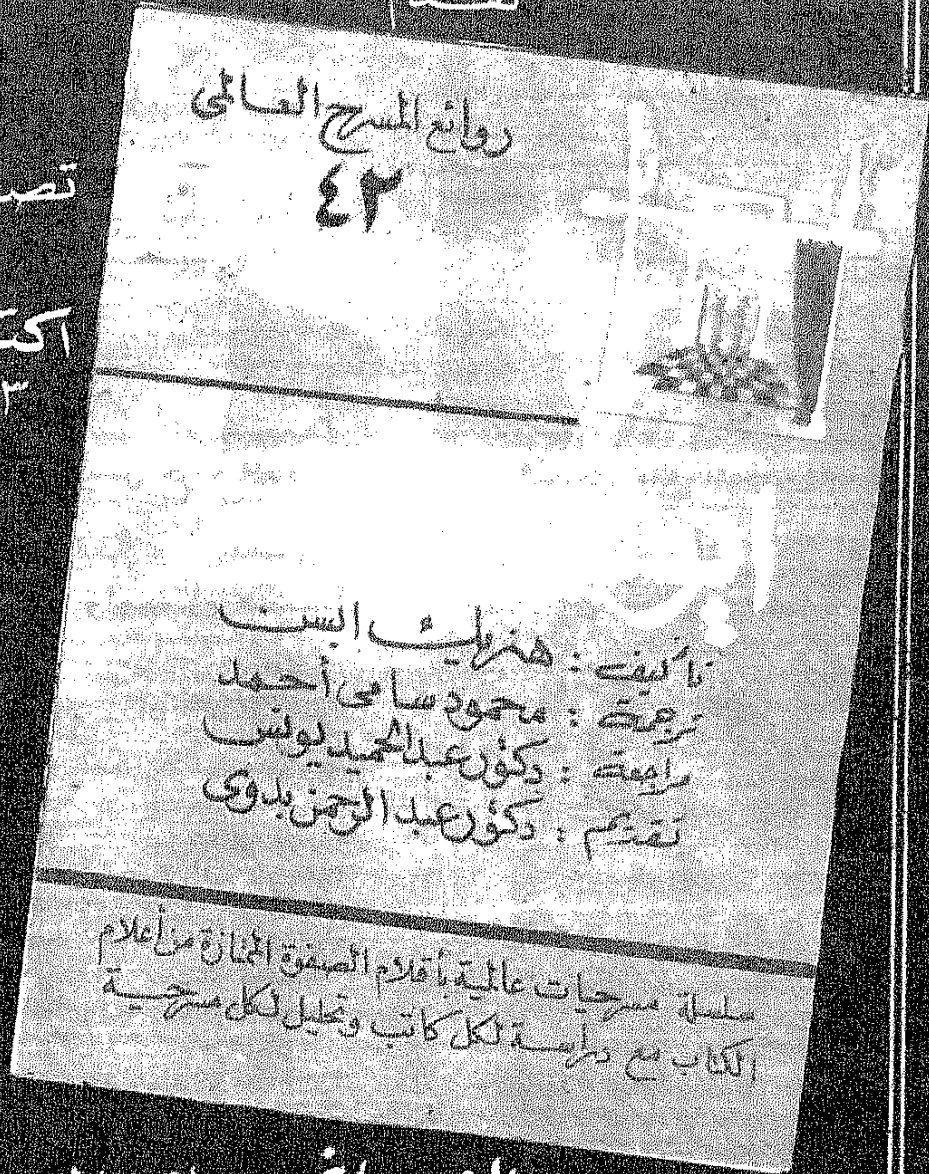 روائع المسرح العالمى
٤٢
تأليف : هنريك ابسن
ترجمة : محمود سامى أحمد
مراجعة : دكتور عبد الحميد يونس
تقديم : دكتور عبد الرحمن بدوى
سلسلة مسرحيات عالمية بأقلام الصفوة الممتازة من أعلام
الكتاب مع دراسة لكل كاتب وتحليل لكل مسرحية